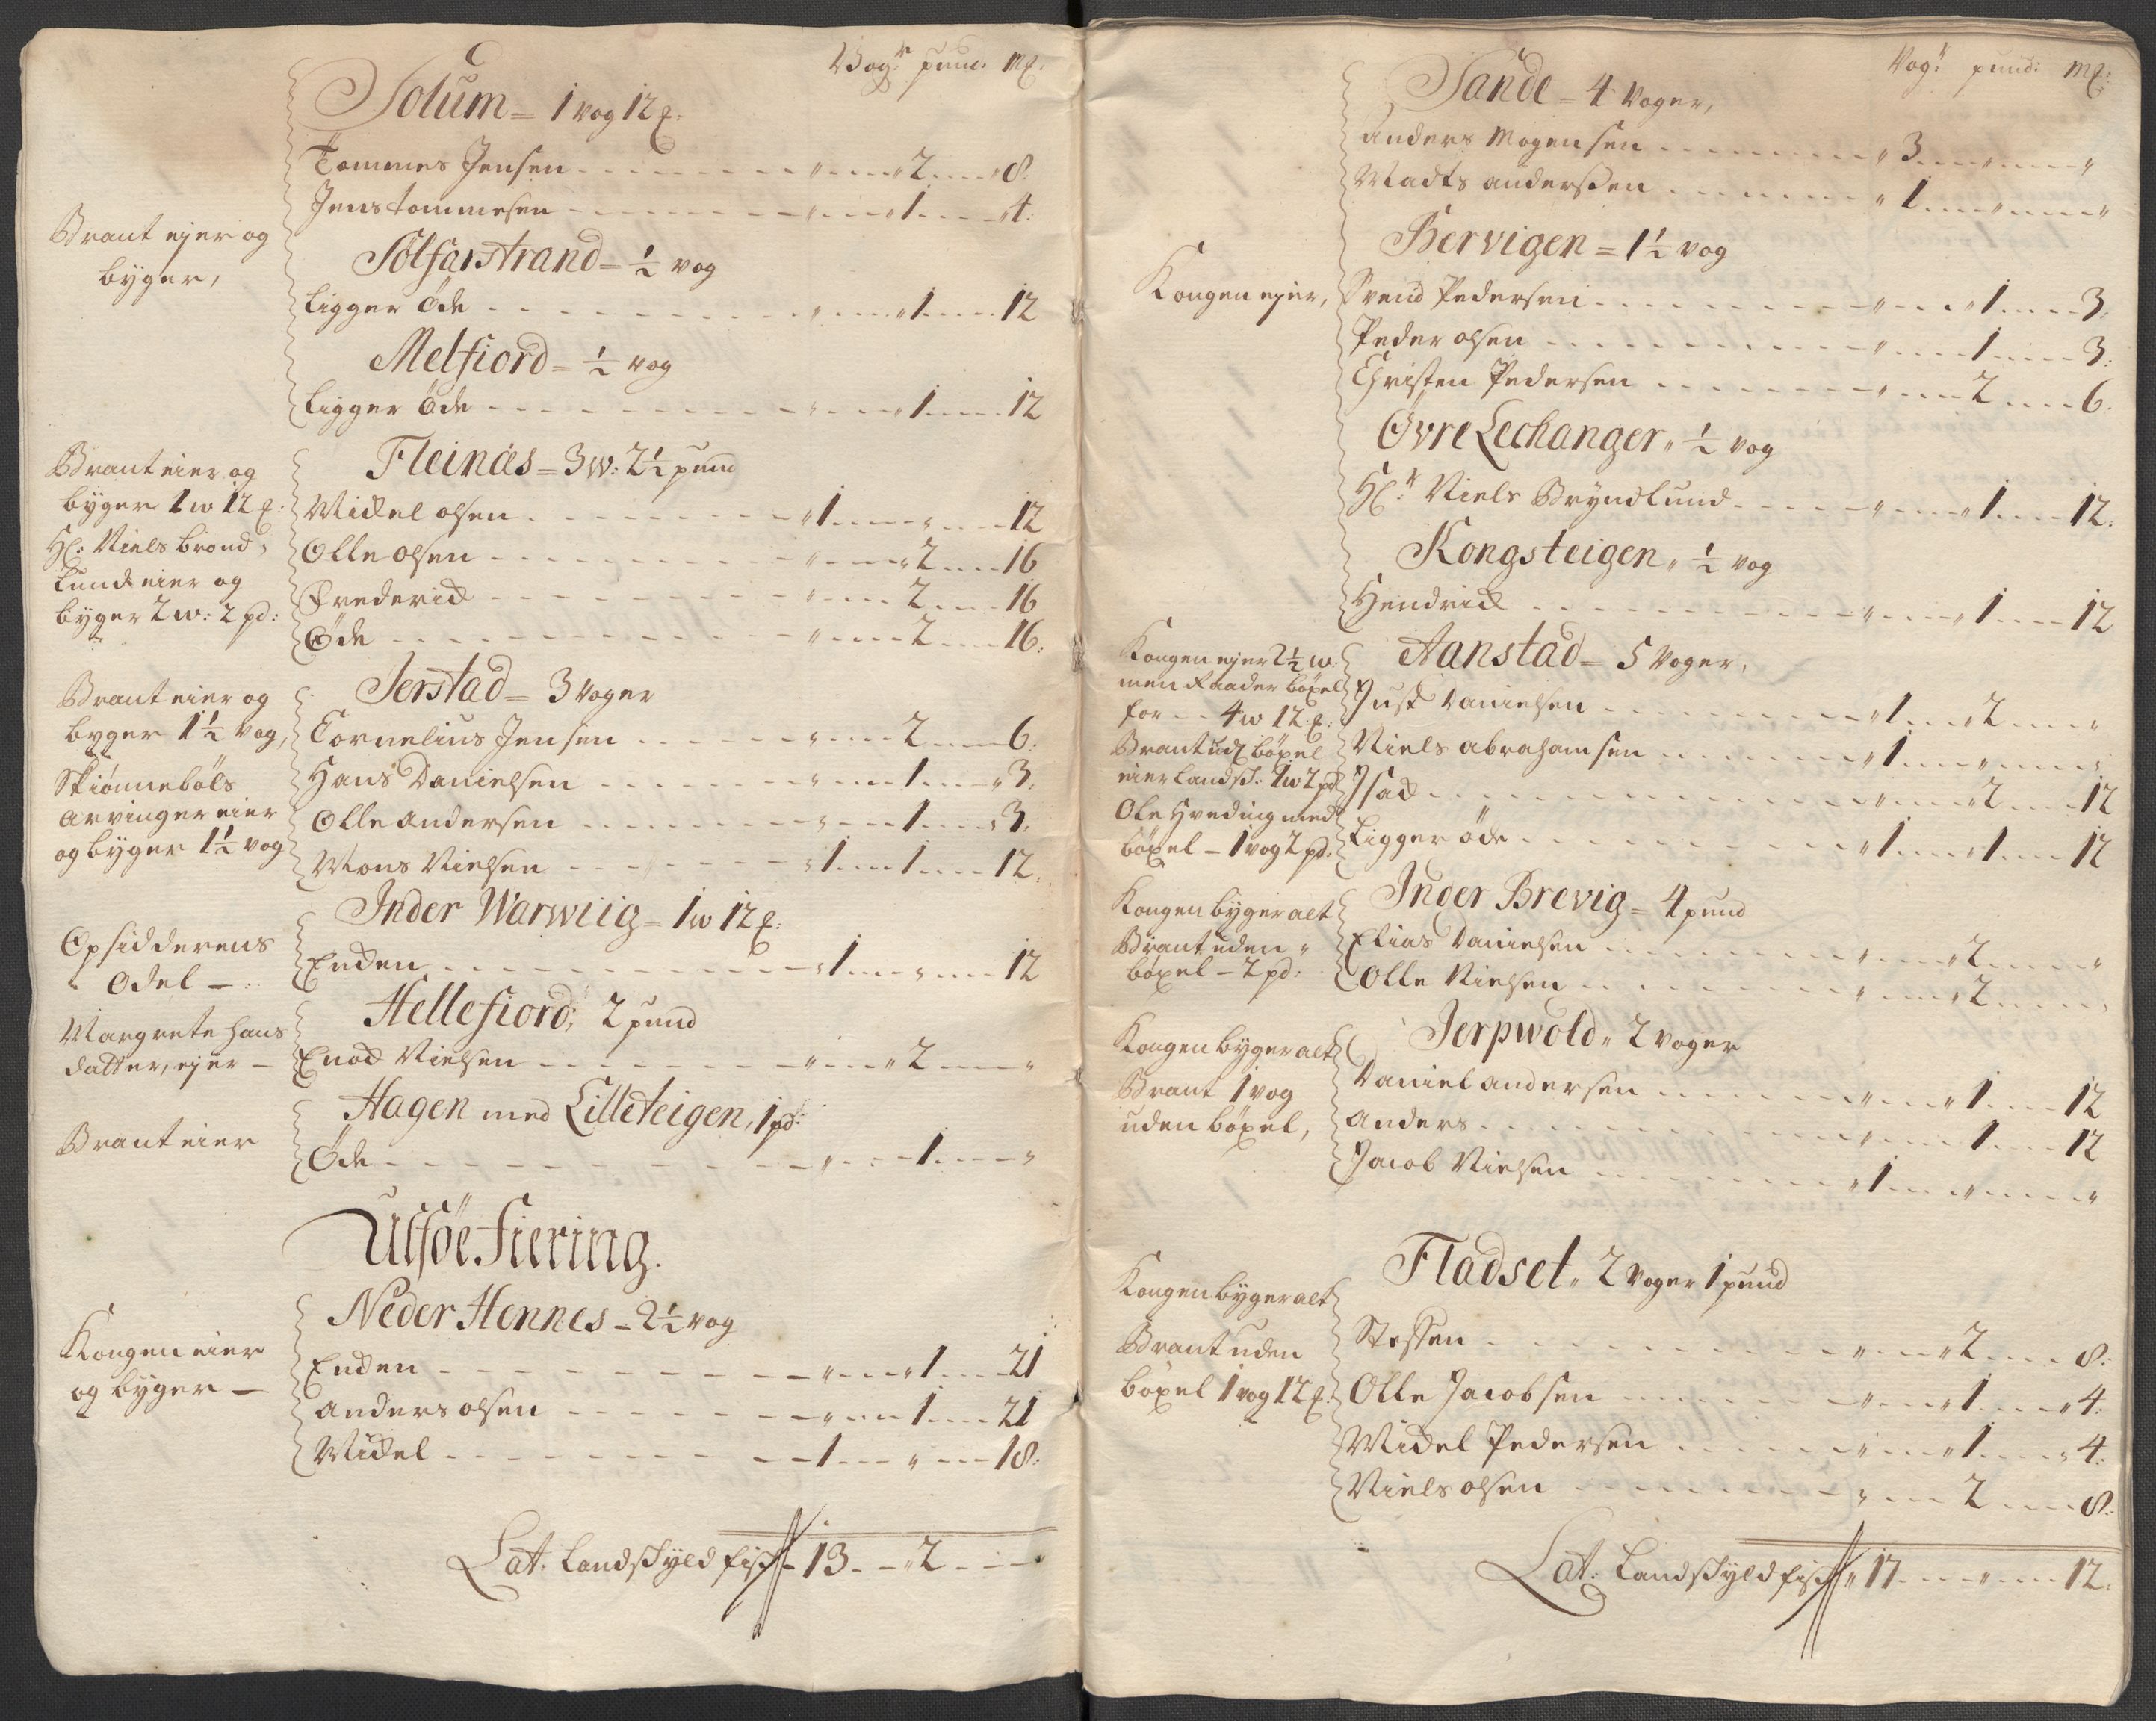 Wog:r pund: m℔:
Solum = 1 vog 12 ℔:
Tommes Jensen - - - „ - - - 2 - - - 8.
Jens tommesen - - - „ - - - 1 - - - 4:
Brant ejer og
byger,
Solfarstrand = ½ vog
ligger øde - - - „ - - - 1 - - - 12
Melfiord = ½ vog
ligger øde - - - „ - - - 1 - - - 12
Fleinæs = 3 w: 2½ pund
Brant eier og
byger 1 w 12 ℔:
Hr: Niels Brond,
lund eier og
byger 2 w: 2 pd:
Mickel olsen - - - 1 - - - „ - - - 12
Olle olsen - - - „ - - - 2 - - - 16
Frederick - - - „ - - - 2 - - - 16
Øde - - - „ - - - 2 - - - 16:
Jerstad = 3 Voger
Brant eier og
byger 1½ vog,
Skiønnebøls
arvinger eier
og byger 1½ vog
Cornelius Jensen - - - „ - - - 2 - - - 6:
Hans Danielsen - - - „ - - - 1 - - - 3:
Olle andersen - - - „ - - - 1 - - - 3:
Mons Nielsen - - - 1 - - - 1 - - - 12:
Inder Warwiig = 1 w 12 ℔:
Opsidderens
Odel -
Enden - - - 1 - - - „ - - - 12
Hellefiord; 2 pund
Margrete hans
datter, ejer -
Enock Nielsen - - - „ - - - 2 - - - „
Hagen med Lilleteigen, 1 pd:
Brant eier
Øde - - - „ - - - 1 - - - „
Utføe Fiering.
Neder Hennes - 2½ vog
Kongen eier
og byger -
Enden - - - „ - - - 1 - - - 21
anders olsen - - - „ - - - 1 - - - 21
Mickel - - - 1 - - - „ - - - 18:
Lat. Landskyld fisk - 13 - - 2 - - -
Vog:r pund: m℔:
Sande = 4 Voger,
Anders Mogensen - - - 3 - - - „ - - - „
Madts anderssen - - - 1 - - - „ - - - „
Bervigen = 1½ vog
Kongen ejer,
Svend Pedersen - - - „ - - - 1 - - - 3:
Peder olsen - - - „ - - - 1 - - - 3:
Christen Pedersen - - - „ - - - 2 - - - 6.
Øvre Lechanger „ ½ vog
Hr: Niels Bryndlund - - - „ - - - 1 - - - 12:
Kongsteigen „ ½ vog
Hendrick - - - „ - - - 1 - - - 12
Aanstad = 5 Voger,
Kongen ejer 2½ w:
men Raader böxel
for - - 4 w 12 ℔:
Brant ud böxel
eier Landsk: 1 w 2 pd
Ole Hveding med
böxel - 1 vog 2 pd:
Just Danielsen - - - 1 - - - 2 - - - „
Niels abrahamsen - - - 1 - - - „ - - - „
Isack - - - „ - - - 2 - - - 12
ligger öde - - - 1 - - - 1 - - - 12
Inder Brevig = 4 pund
Kongen byger alt
Brant uden „
böxel - 2 pd:
Elias Danielsen - - - „ - - - 2 - - - „
Olle Nielsen - - - „ - - - 2 - - - „
Jerpwold „ 2 voger
Kongen byger alt
Brant 1 vog
uden böxel,
Daniel andersen - - - „ - - - 1 - - - 12
anders - - - „ - - - 1 - - - 12
Jacob Nielsen - - - 1 - - - „ - - - „
Fladset „ 2 voger 1 pund
Kongen byger alt
Brant uden
böxel 1 vog 12 ℔:
Steffen - - - „ - - - 2 - - - 8:
Olle Jacobsen - - - „ - - - 1 - - - 4:
Mickel Pedersen - - - „ - - - 1 - - - 4:
Niels olsen - - - „ - - - 2 - - - 8:
Lat: Landskyld fisk „ 17 - - - „ - - - 12: